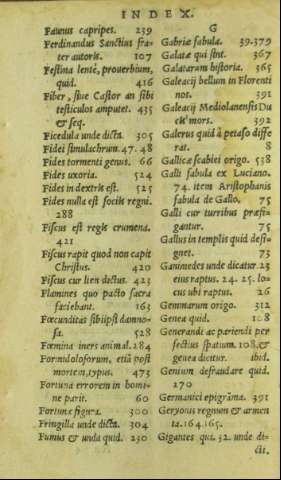 INDEX.
Faunus capripes. 239
Ferdinandus Sanctius fra-
ter autoris. 107
Festina lentè, prouerbium,
quid. 416
Fiber, siue Castor an sibi
testiculos amputet. 435
& seq.
Ficedula unde dicta. 305
Fidei simulachrum. 47. 48
Fides tormenti genus. 66
Fides uxoria. 524
Fides in dextris est. 525
Fides nulla est sociis regni.
288
Fiscus est regis crumena.
421
Fiscus rapit quod non capit
Christus. 420
Fiscus cur lien dictus. 423
Flamines quo pacto sacra
faciebant. 163
Fœcunditas sibiipsi damno-
sa. 528
Fœmina iners animal. 284
Formidolosorum, etiã post
mortem, typus. 473
Fortuna errorem in homi-
ne parit. 60
Fortunæ figura. 300
Fringilla unde dicta. 304
Fumus & unda quid. 230
G
Gabriæ fabula. 39.379
Galatæ qui sint. 367
Galatarum historia. 365
Galeacij bellum in Florenti
nos. 391
Galeacij Mediolanensis Du
cis mors. 392
Galerus quid à petaso diffe
rat. 8
Gallicæ scabiei origo. 538
Galli fabula ex Luciano.
74. item Aristophanis
fabula de Gallo. 75
Galli cur turribus præfi-
gantur. 75
Gallus in templis quid desi-
gnet. 73
Ganimedes unde dicatur. 23
eius raptus. 24. 25. lo-
cus ubi raptus. 26
Gemmarum origo. 312
Genea quid. 108
Generandi ac pariendi per
fectius spatium. 108. &
genea dicitur. ibid.
Genium defraudare quid.
270
Germanici epigrãma. 391
Geryonis regnum & armen
ta. 164.165.
Gigantes qui. 32. unde di-
cti.